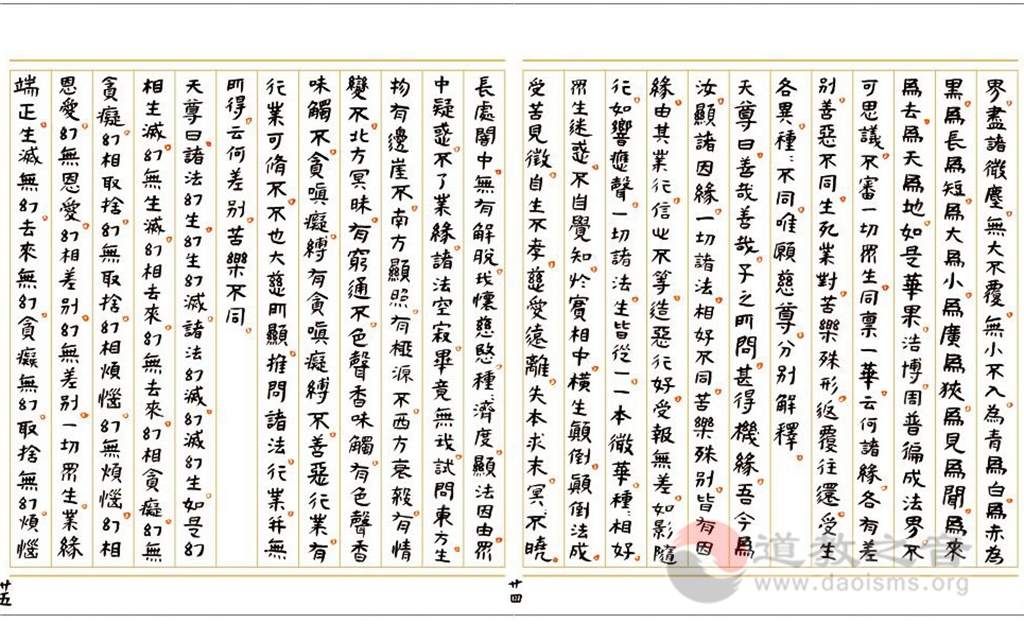 界盡諸微塵無大不覆無小不入為青爲白爲赤為
黑爲長爲短爲大爲小爲廣爲狹爲見爲聞爲來
爲去爲天爲地如是華果浩博周普徧成法界不
可思議不審一切眾生同禀一華云何諸緣各有差
別善惡不同生死業對苦樂殊形返覆往還受生
各異種〻不同唯願慈尊分別解釋
天尊曰善哉善哉子之所問甚得機緣吾今爲
汝顯諸因緣一切諸法相好不同苦樂殊別皆有因
緣由其業行信心不等造惡行好受報無差如影隨
行如響應聲一切諸法生皆從一一本微華種〻相好
眾生迷惑不自覺知於實相中橫生顛倒顛倒法成
受苦見徵自生不孝慈愛遠離失本求末冥〻不曉
廿四
長處闇中無有解脫我懷慈愍種〻濟度顯法因由眾
中疑惑不了業緣諸法空寂畢竟無我試問東方生
物有邊崖不南方顯照有極源不西方衰殺有情
變不北方冥昧有窮通不色聲香味觸有色聲香
味觸不貪嗔癡縛有貪嗔癡縛不善惡行業有
行業可脩不不也大慈所顯推問諸法行業并無
所得云何差別苦樂不同
天尊曰諸法幻生幻生幻滅諸法幻滅幻滅幻生如是幻
相生滅幻無生滅幻相去來幻無去來幻相貪癡幻無
貪癡幻相取捨幻無取捨幻相煩惱幻無煩惱幻相
恩愛幻無恩愛幻相差別幻無差別一切眾生業緣
端正生滅無幻去來無幻貪癡無幻取捨無幻煩惱
廿五
道教之音
www.daoisms.org